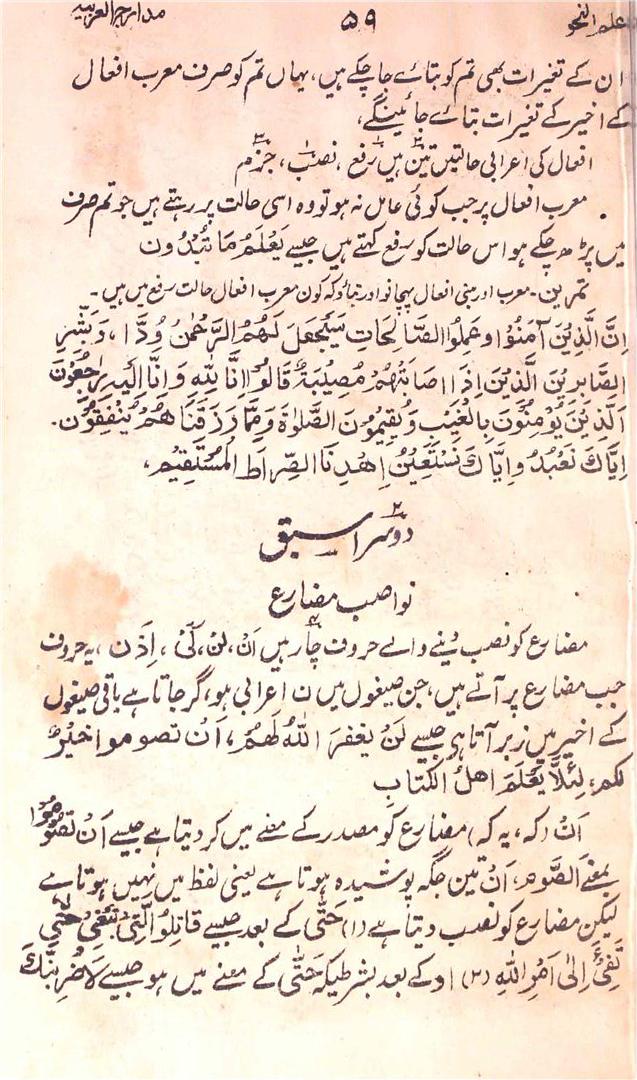 علم النحو ۵۹ مدارج العربیہ
ان کے تغیرات بھی تم کو بتائے جا چکے ہیں، یہاں تم کو صرف معرب افعال
کے اخیر کے تغیرات بتائے جائینگے،
افعال کی اعرابی حالتیں تین ہیں رفع، نصب، جزم
معرب افعال پر جب کوئی عامل نہ ہو تو وہ اسی حالت پر رہتے ہیں جو تم صرف
میں پڑھ چکے ہو اس حالت کو رفع کہتے ہیں جیسے یَعْلَمُ مَا تُبْدُونَ
تمرین۔ معرب اور مبنی افعال پہچانو اور بتاؤ کہ کون معرب افعال حالت رفع میں ہیں۔
اِنَّ الَّذِیْنَ آمَنُوْا وعَمِلُوا الصَّالِحَاتِ سَیَجْعَلُ لَهُمُ الرَّحْمٰنُ وُدًّا، وَبَشِّرِ
الصَّابِرِیْنَ الَّذِیْنَ اِذَا اصَابَتْهُمْ مُصِیْبَةٌ قَالُوْا اِنَّا لِلّٰهِ وَاِنَّا اِلَیْهِ رَاجِعُوْنَ
اَلَّذِیْنَ یُوْمِنُوْنَ بِالْغَیْبِ وَیُقِیْمُوْنَ الصَّلٰوةَ وَمِمَّا رَزَقْنَا هُمْ یُنْفِقُوْنَ۔
اِیَّاكَ نَعْبُدُ وَاِیَّاكَ نَسْتَعِیْنُ اِهْدِنَا الصِّرَاطَ الْمُسْتَقِیْمَ،
دوسرا سبق ۲
نواصب مضارع
مضارع کو نصب دینے والے حروف چار ہیں اَنْ، لَنْ، کَیْ، اِذَن، یہ حروف
جب مضارع پر آتے ہیں، جن صیغوں میں ن اعرابی ہو، گر جاتا ہے باقی صیغوں
کے اخیر میں زبر آتا ہی جیسے لَنْ یَغْفِرَ اللّٰهُ لَهُمْ، اَنْ تصوموا خَیْرٌ
لکم، لِئَلَّا یَعْلَمَ اهلُ الْکِتَابِ
اَنْ (کہ، یہ کہ) مضارع کو مصدر کے معنے میں کر دیتا ہے جیسے اَنْ تَصُوْمُوْا
بمعنے اَلصَّوم، اَنْ تین جگہ پوشیدہ ہوتا ہے یعنی لفظ میں نہیں ہوتا ہے
لیکن مضارع کو نصب دیتا ہے (۱) حَتّٰی کے بعد جیسے قَاتِلُوا الَّتِیْ تَبْغِیْ حَتّٰی
تَفِیْٓءَ اِلٰی اَمْرِ اللّٰهِ (۲) او کے بعد بشرطیکہ حَتّٰی کے معنے میں ہو جیسے لَاَضْرِبَنَّكَ